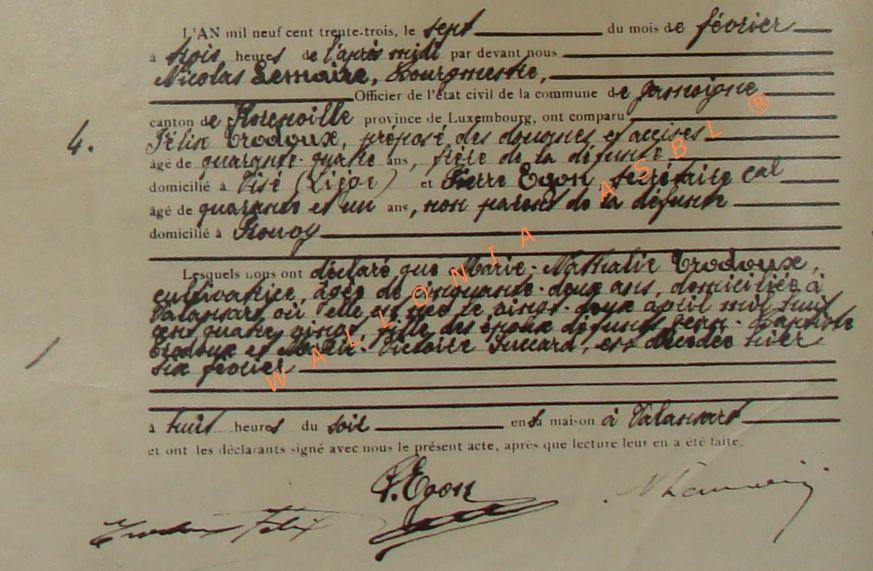 L'AN mil neuf cent trente-trois, le sept du mois de février
à trois heures de l'après midi par devant nous
Nicolas Lemaire, Bourgmestre,
Officier de l'état civil de la commune de Jamoigne
canton de Florenville province de Luxembourg, ont comparu
4. Félix Trodoux, préposé des douanes et accises
âgé de quarante-quatre ans, frère de la défunte
domicilié à Visé (Liège) et Pierre Egon, secrétaire cal
âgé de quarante et un ans, non parent de la défunte
domicilié à
Lesquels nous ont déclaré que Marie-Nathalie Trodoux,
cultivatrice, âgée de cinquante-deux ans, domiciliée à
Valansart, où elle est née le vingt-deux avril mil huit
cent quatre vingt, fille des époux défunts Jean-Baptiste
Trodoux et Marie-Victoire Succard, est décédée hier
six février
à huit heures du soir en sa maison à Valansart
et ont les déclarants signé avec nous le présent acte, après que lecture leur en a été faite.
P. Egon
Trodoux Félix
WALLONIA ASBL ®